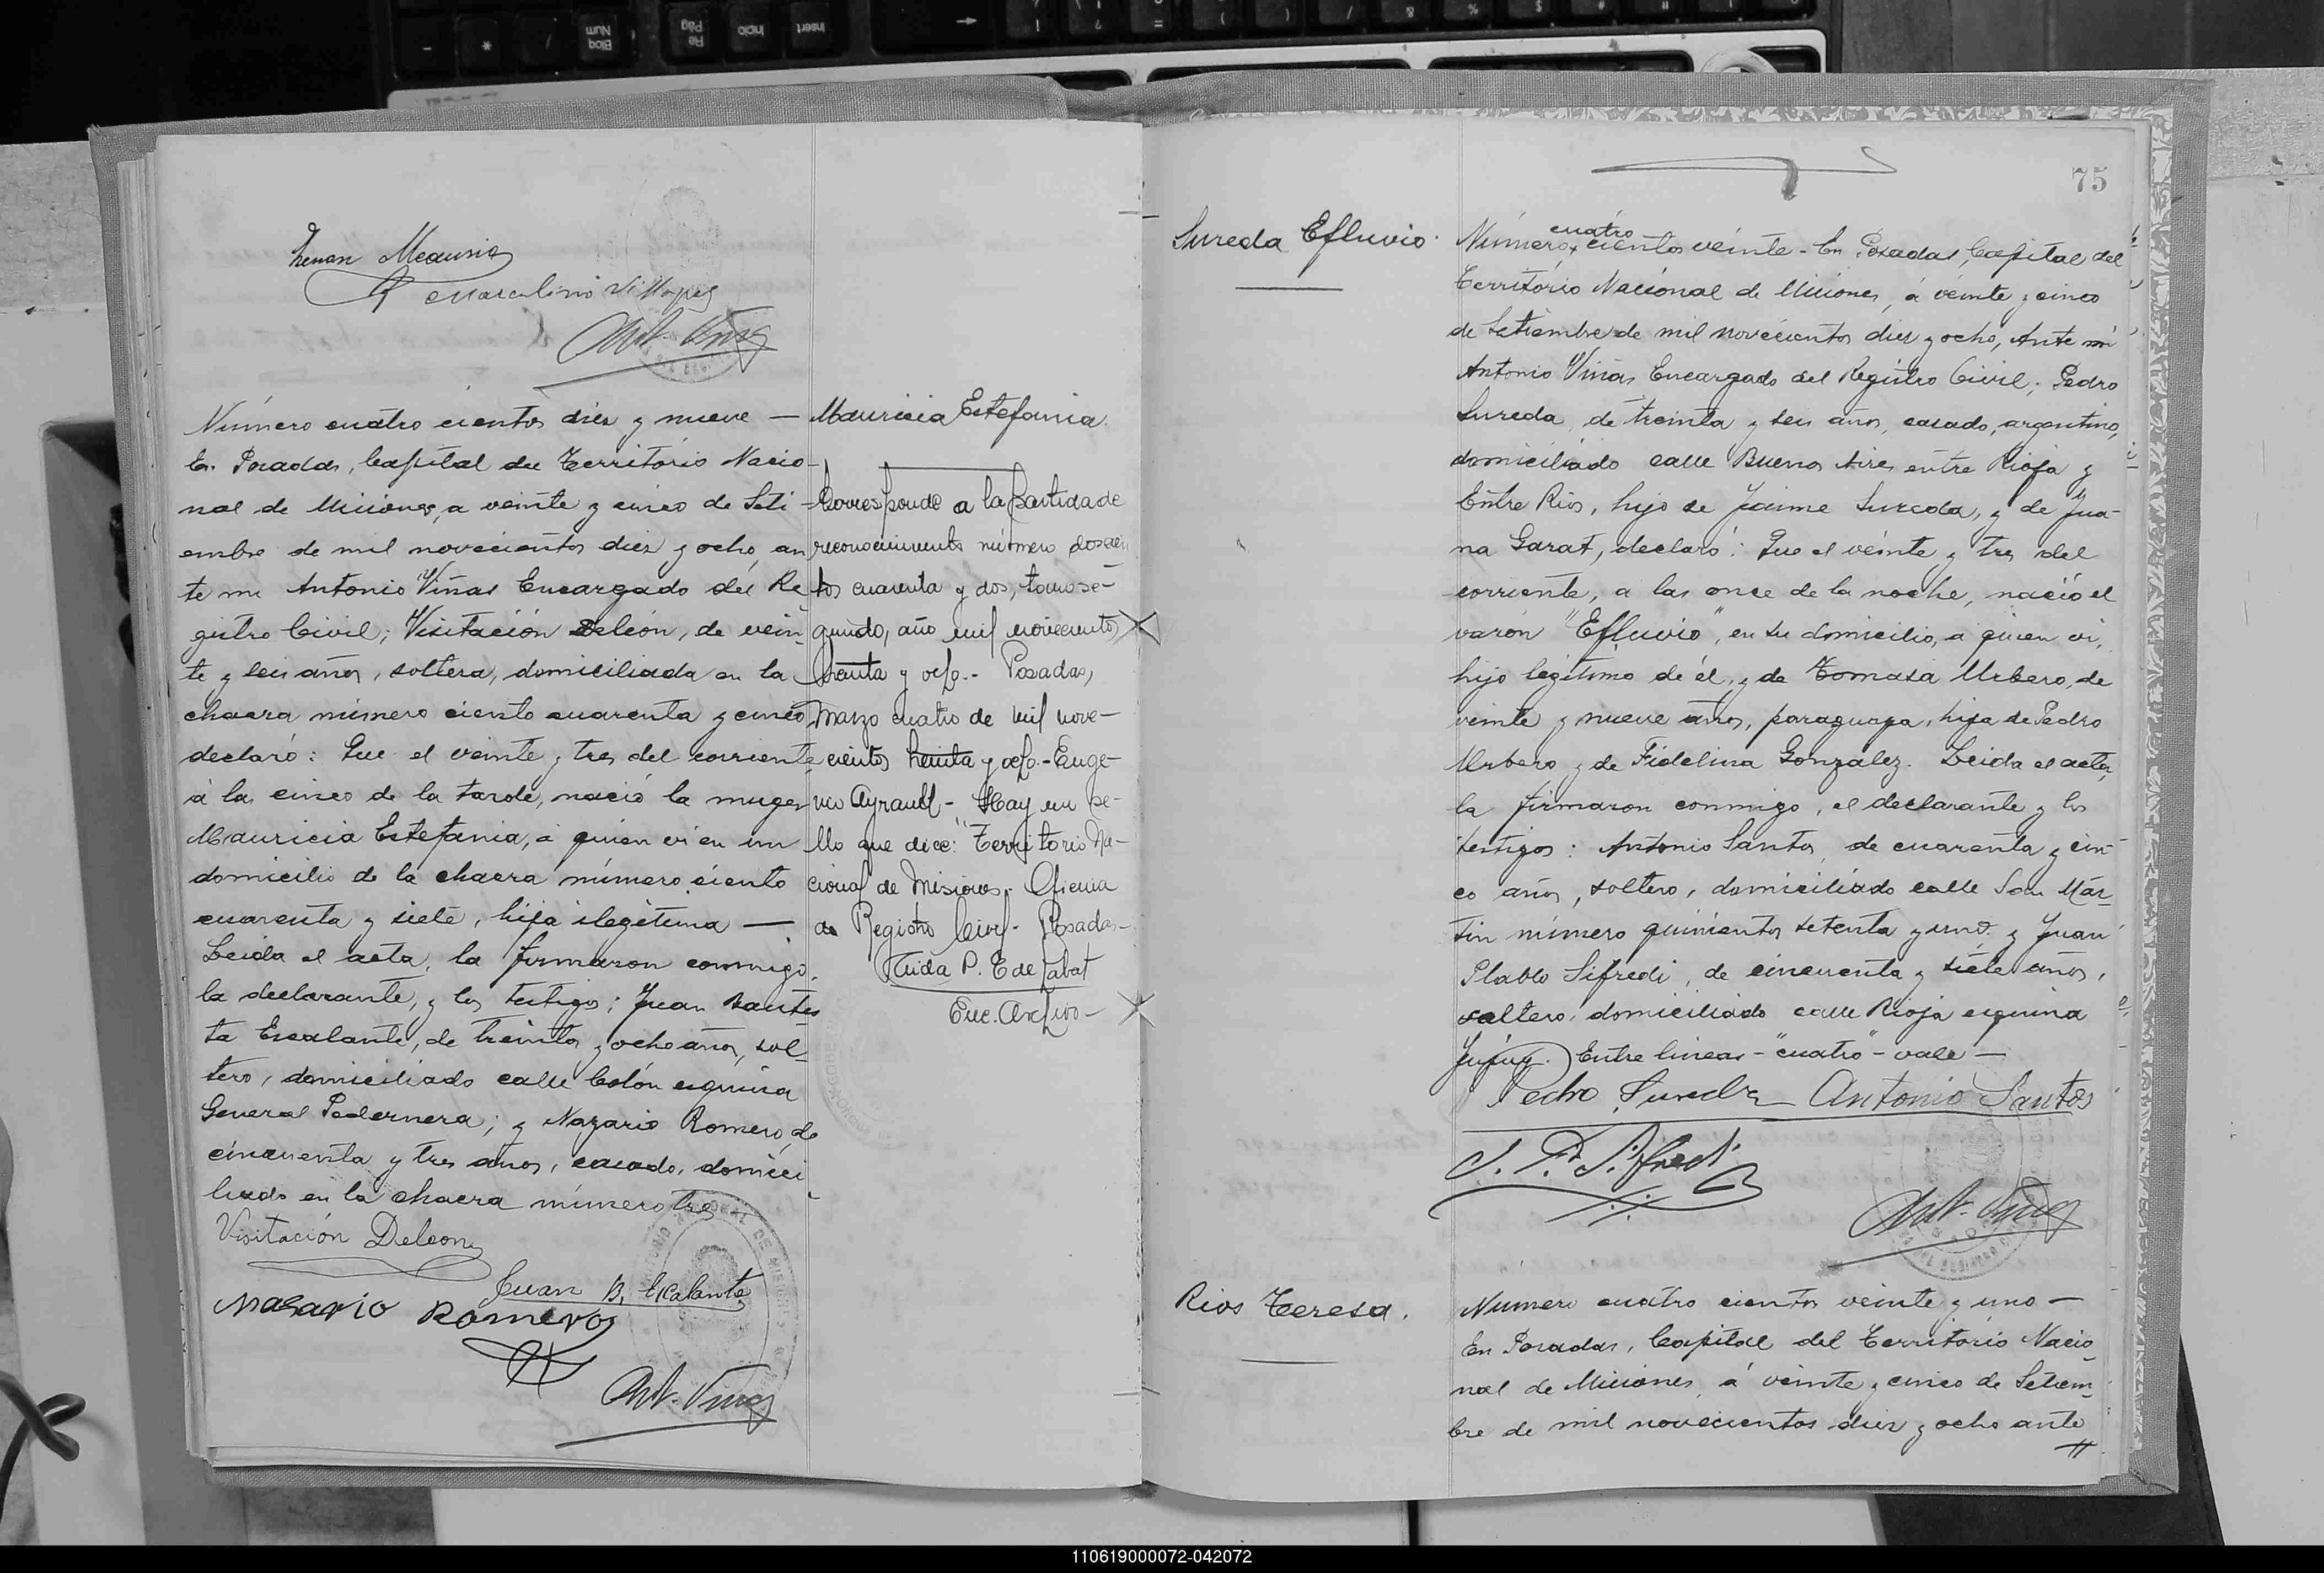 Marcelino Villopez
Ant. Viñas
Número cuatro cientos diez y nueve —
En Posadas, Capital del Territorio Nacio-
nal de Misiones, a veinte y cinco de Seti-
embre de mil novecientos diez y ocho, an
te mi Antonio Viñas Encargado del Re
gistro Civil; Visitación Deleón, de vein-
te y seis años, soltera, domiciliada en la
chacra número ciento cuarenta y cinco,
declaró: Que el veinte y tres del corriente
á las cinco de la tarde, nació la muger
Mauricia Estefania, á quien vi en un
domicilio de la chacra número ciento
cuarenta y siete, hija ilegitima —
Leida el acta, la firmaron conmigo,
la declarante, y los testigos; Juan Bautis
ta Escalante, de treinta y ocho años, sol-
tero, domiciliado calle Colón esquina
General Pedernera; y Nazario Romero, de
cincuenta y tres años, casado, domici-
liado en la chacra número tres
Visitación Deleon
Juan B. Escalante
Nasario Romero
Ant. Viñas
Mauricia Estefania.
Corresponde a la partida de
reconocimiento número doscien
tos cuarenta y dos, tomo se-
gundo, año mil novecientos
treinta y ocho.- Posadas,
marzo cuatro de mil nove-
cientos treinta y ocho.- Euge-
nio Ayrault - Hay un se-
llo que dice: "Territorio Na-
cional de Misiones - Oficina
de Registro Civil - Posadas -
Aida P. T de Labat
Enc. Archivo -
75
Sureda Efluvio.
cuatro
Número, cientos veinte - En Posadas, Capital del
Território Nacional de Misiones, á veinte y cinco
de Setiembre de mil novecientos diez y ocho, Ante mi
Antonio Viñas Encargado del Registro Civil; Pedro
Sureda, de treinta y seis años, casado, argentino,
domiciliado calle Buenos Aires entre Rioja y
Entre Rios, hijo de Jaime Sureda, y de Jua-
na Garat, declaró: Que el veinte y tres del
corriente, a las once de la noche, nació el
varón "Efluvio", en su domicilio, a quien vi,
hijo legitimo de él, y de Tomasa Urbero, de
veinte y nueve años, paraguaya, hija de Pedro
Urbero y de Fidelina González. Leida el acta,
la firmaron conmigo, el declarante y los
testigos: Antonio Santos, de cuarenta y cin-
co años, soltero, domiciliado calle San Mar-
tin número quinientos setenta y uno. y Juan
Plablo Sifredi, de cincuenta y siete años,
soltero, domiciliado calle Rioja esquina
Jujuy. Entre lineas - "cuatro" - vale —
Pedro Sureda Antonio Santos
J. P. Sifredi
Ant. Viñas
Rios Teresa.
Número cuatro cientos veinte y uno —
En Posadas, Capital del Territorio Nacio
nal de Misiones, á veinte y cinco de Setiem-
bre de mil novecientos diez y ocho ante
110619000072-042072